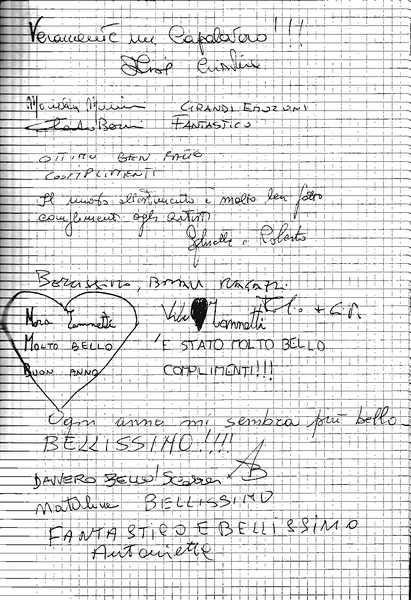 Veramente un Capolavoro!!!
GRANDI EMOZIONI
FANTASTICO
OTTIMO BEN FATTO
COMPLIMENTI
Il nuovo allestimento è molto ben fatto
complimenti agli artisti
e Roberto
BELLISSIMO, BRAVI RAGAZZI.
Nora Iannetti
Iannetti
MOLTO BELLO
'E STATO MOLTO BELLO
BUON ANNO
COMPLIMENTI!!!
Ogni anno mi sembra più bello
BELLISSIMO!!!!
DAVVERO BELLO!
BELLISSIMO
FANTASTICO E BELLISSIMO
Antonietta